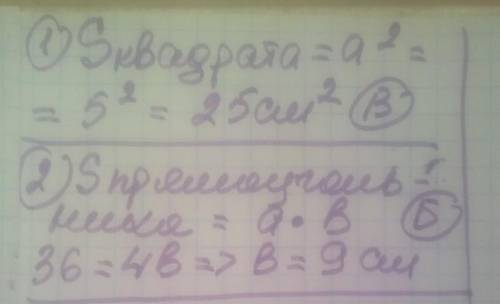 1) Sквадрата = a² =
= 5² = 25 см² В
2) Sпрямоуголь-
ника = a · b Б
36 = 4b => b = 9 см